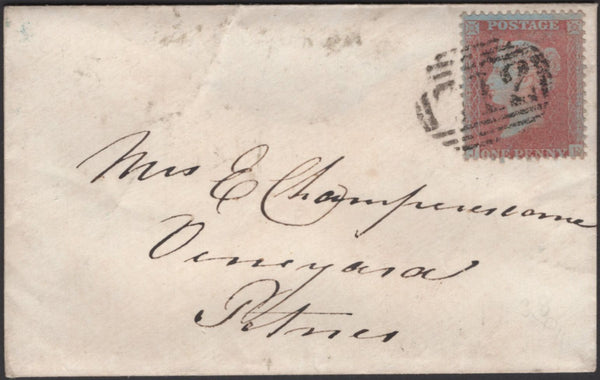 POSTAGE
ONE PENNY
Mrs E Champernowne
Vineyard